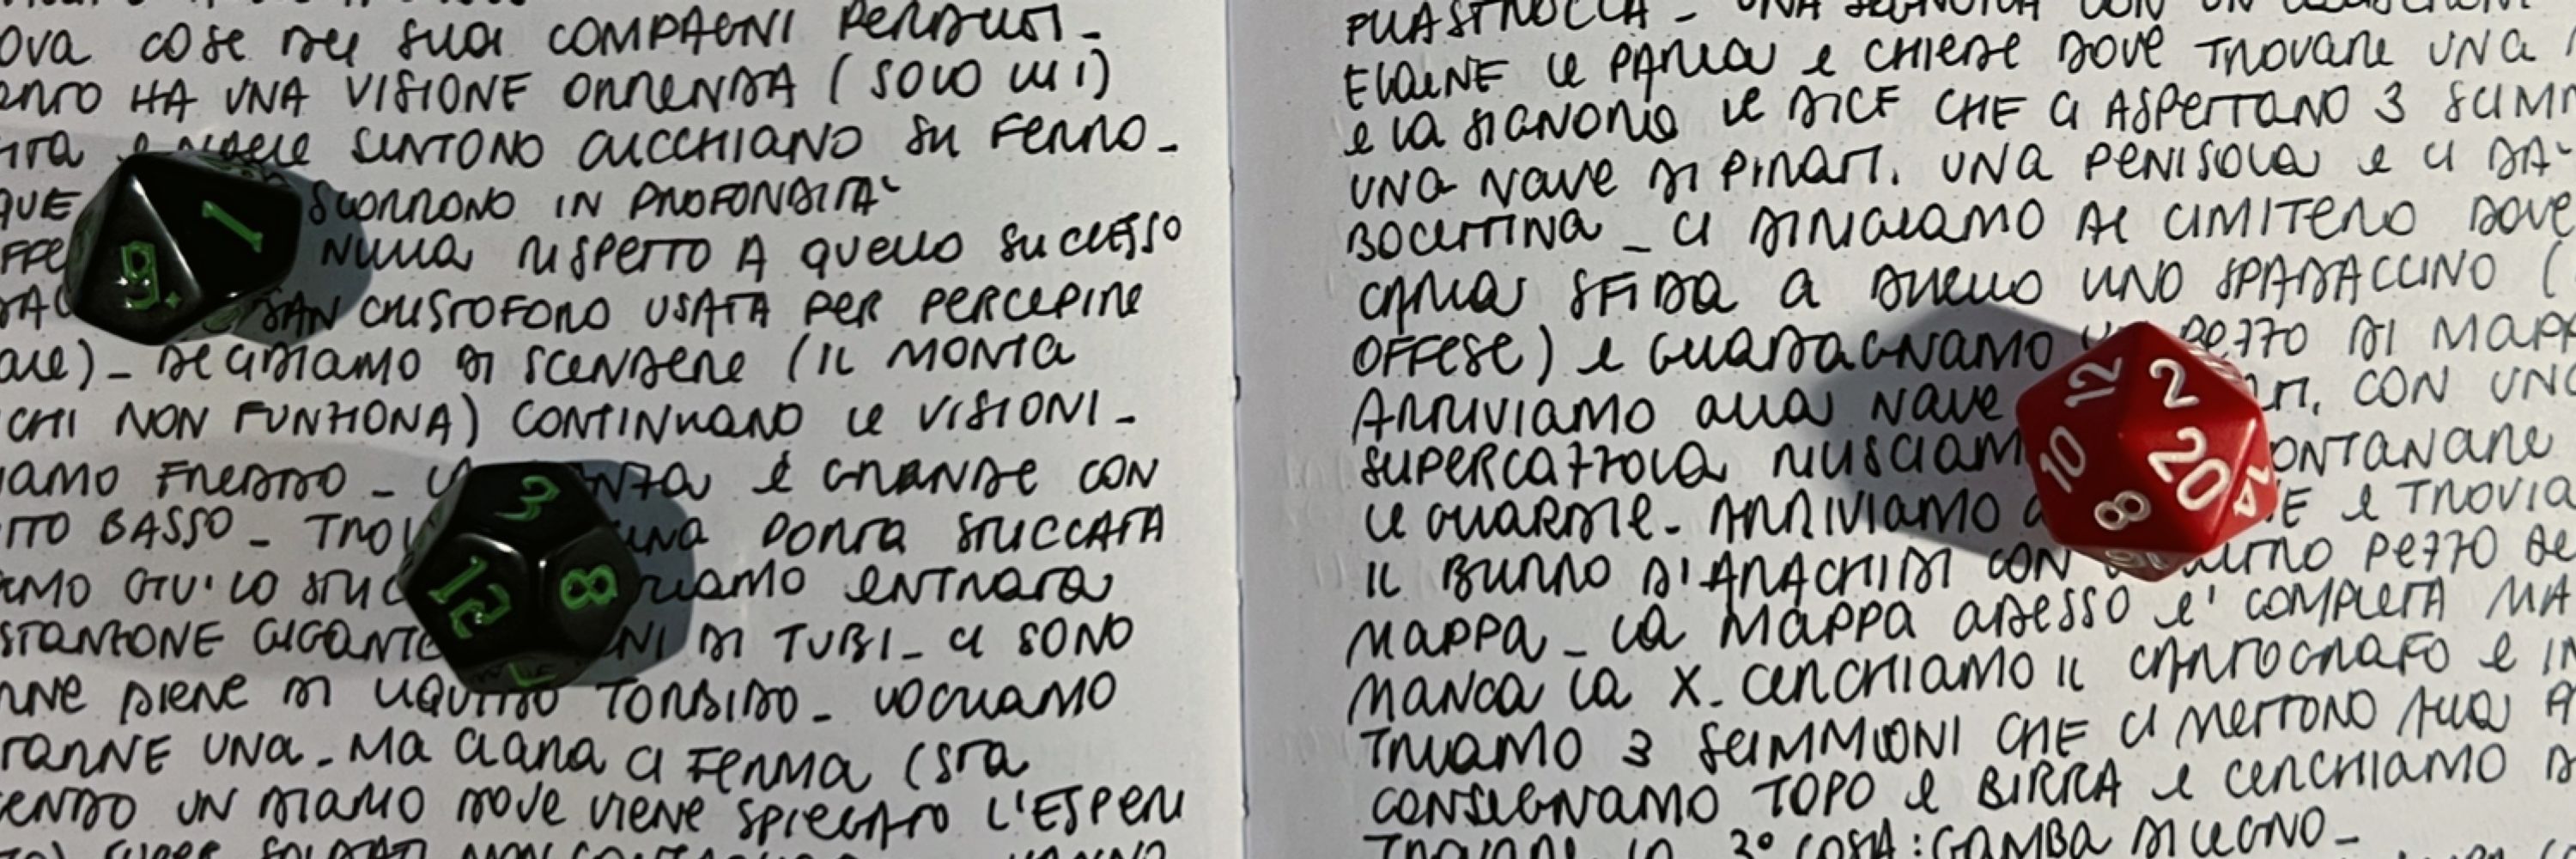 OVA COSE DEI SUOI COMPAGNI PERDUTI_
HA UNA VISIONE ORRENDA (SOLO LUI)
SENTONO CUCCHIAIO SU FERRO_
SCORRONO IN PROFONDITA'
NULLA RISPETTO A QUELLO SUCCESSO
SAN CRISTOFORO USATA PER PERCEPIRE
ALE)_ DECIDIAMO DI SCENDERE (IL MONTA
CHI NON FUNZIONA) CONTINUANO LE VISIONI_
IAMO FREDDO_ È GRANDE CON
TTO BASSO_ UNA PORTA STUCCATA
AMO GIU' LO ENTRATA
STANZONE DI TUBI_ CI SONO
NNE PIENE DI LIQUIDO TORBIDO_ LOCHIAMO
TRANNE UNA_ MA CIARA CI FERMA (STA
ENDO UN DIARIO DOVE VIENE SPIEGATO L'ESPERI
SUPER SOLDATI NON
FILASTROCCA_ UNA SIGNORA CON UN
ELAINE LE PARLA E CHIEDE DOVE TROVARE UNA
E LA SIGNORA LE DICE CHE CI ASPETTANO 3 SCIMM
UNA NAVE DI PIRATI, UNA PENISOLA E CI DA'
BOCCETTINA_ CI DIRIGIAMO AL CIMITERO DOVE
CARLA SFIDA A DUELLO UNO SPADACCINO (
OFFESE) E GUADAGNAMO UN PEZZO DI MAPP
ARRIVIAMO ALLA NAVE TI, CON UNA
SUPERCAZZOLA RIUSCIAM ONTANARE
LE GUARDIE_ ARRIVIAMO E TROVIA
IL BURRO D'ARACHIDI CON PEZZO DE
MAPPA_ LA MAPPA ADESSO E' COMPLETA MA
MANCA LA X_ CERCHIAMO IL CARTOGRAFO E IN
TRIAMO 3 SCIMMIONI CHE CI METTONO ALLA P
CONSEGNAMO TOPO E BIRRA E CERCHIAMO D
TROVARE LA 3° COSA: GAMBA DI LEGNO_
1
9.
3
12
8
12
2
10
20
8
14